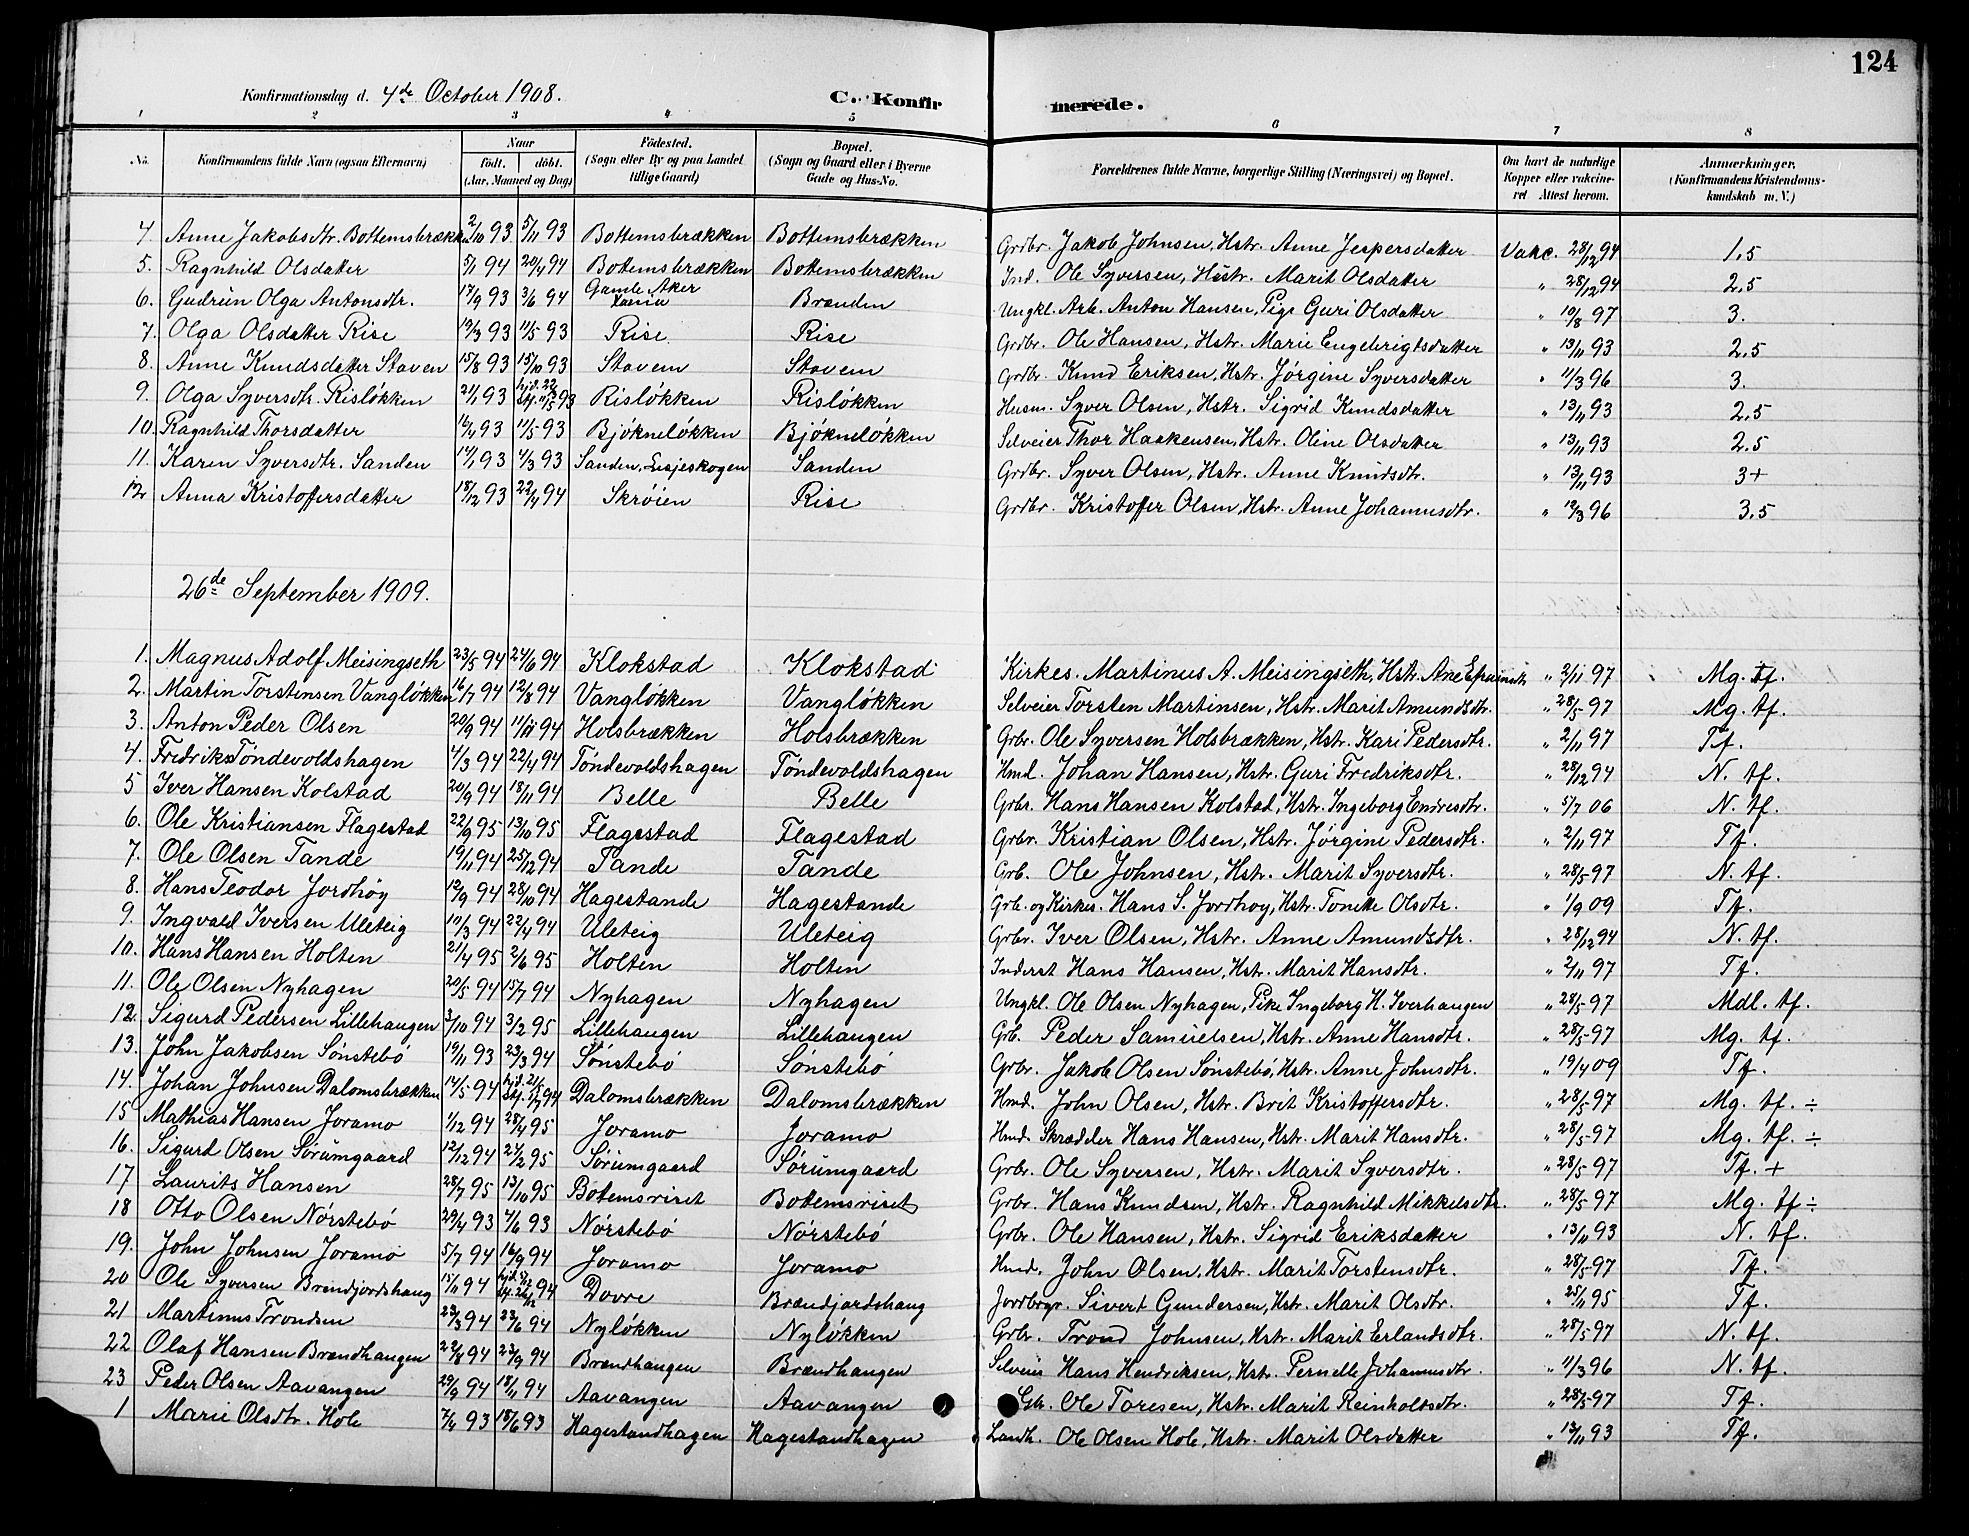 124
Konfirmationsdag d. 4de October 1908. C. Konfirmerede.
1 2 3 4 5 6 7 8
No. Konfirmandens fulde Navn (ogsaa Efternavn) Naar født. døbt. (Aar, Maaned og Dag) Fødested. (Sogn eller By og paa Landet tillige Gaard) Bopæl. (Sogn og Gaard eller i Byerne Gade og Hus-No. Forældrenes fulde Navne, borgerlige Stilling (Næringsvei) og Bopæl. Om havt de naturlige Kopper eller vakcineret Attest herom. Anmærkninger, (Konfirmandens Kristendomskundskab m. V.)
4. Anne Jakobsdtr. Bottemsbrækken 2/10 93 5/11 93 Bottemsbrækken Bottemsbrækken Grdbr. Jakob Johnsen, Hstr. Anne Jespersdatter Vakc. 28/12 94 1,5
5. Ragnhild Olsdatter 5/1 94 20/4 94 Bottemsbrækken Bottemsbrækken Ind. Ole Syversen, Hustr. Marit Olsdatter " 28/12 94 2,5
6. Gudrun Olga Antonsdtr. 17/9 93 3/6 94 Gamle Aker Brænden Ungkl. Arb. Anton Hansen, Pige Guri Olsdatter " 10/8 97 3.
7. Olga Olsdatter Rise 12/3 93 11/5 93 Rise Rise Grdbr. Ole Hansen, Hstr. Marie Engebrigtsdatter " 13/11 93 2,5
8. Anne Knudsdatter Staven 15/8 93 15/10 93 Stavem Stavem Grdbr. Knud Eriksen, Hstr. Jørgine Syversdatter " 11/3 96 3.
9. Olga Syversdtr. Risløkken 21/1 93 hjd. 22 Stf. 11/5 93 Risløkken Risløkken Husm. Syver Olsen, Hstr. Sigrid Knudsdatter " 13/11 93 2,5
10. Ragnhild Thorsdatter 16/4 93 11/5 93 Bjøkneløkken Bjøkneløkken Selveier Thor Haakensen, Hstr. Oline Olsdatter " 13/11 93 2,5
11. Karen Syversdtr. Sanden 17/1 93 4/3 93 Sanden, Lesjeskogen Sanden Grdbr. Syver Olsen, Hstr. Anne Knudsdtr. " 13/11 93 3+
12 Anna Kristoffersdatter 18/12 93 22/4 94 Skrøien Rise Grdbr. Kristoffer Olsen, Hstr. Anne Johannesdtr. " 12/3 96 3,5
26de September 1909.
1. Magnus Adolf Meisingseth 23/5 94 24/6 94 Klokstad Klokstad Kirkes. Martinus A. Meisingseth, Hstr. Ane " 2/11 97 Mg. tf.
2. Martin Torstensen Vangløkken 16/7 94 12/8 94 Vangløkken Vangløkken Selveier Torsten Martinsen, Hstr. Marit Amundsdtr. " 28/5 97 Mg. tf.
3. Anton Peder Olsen 20/9 94 11/11 94 Holsbrækken Holsbrækken Grbr. Ole Syversen Holsbrækken, Hstr. Kari Pedersdtr. " 2/11 97 Tf.
4. Fredrik Tøndevoldshagen 4/3 94 22/4 94 Tøndevoldshagen Tøndevoldshagen Hmd. Johan Hansen, Hstr. Guri Fredriksdtr. " 28/12 94 N. tf.
5 Iver Hansen Kolstad 20/9 94 18/11 94 Belle Belle Grbr. Hans Hansen Kolstad, Hstr. Ingeborg Endresdtr. " 5/7 06 N. tf.
6. Ole Kristiansen Flagestad 22/9 95 13/10 95 Flagestad Flagestad Grbr. Kristian Olsen, Hstr. Jørgine Pedersdtr. " 2/11 97 Tf.
7. Ole Olsen Tande 19/11 94 25/12 94 Tande Tande Grb. Ole Johnsen, Hstr. Marit Syversdtr. " 28/5 97 N. tf.
8. Hans Teodor Jordhøy 12/9 94 28/10 94 Hagestande Hagestande Grb. og Kirkes. Hans S. Jordhoy, Hstr. Tonette Olsdtr. " 1/9 09 Tf.
9. Ingvald Iversen Uleteig 10/3 94 22/4 94 Uleteig Uleteig Grbr. Iver Olsen, Hstr. Anne Amundsdtr. " 28/12 94 N. tf.
10. Hans Hansen Holten 21/4 95 2/6 95 Holten Holten Inderst Hans Hansen, Hstr. Marit Hansdtr. " 2/11 97 Tf.
11. Ole Olsen Nyhagen 20/5 94 15/7 94 Nyhagen Nyhagen Ungkl. Ole Olsen Nyhagen, Pike Ingeborg H. Iverhaugen " 28/5 97 Mdl. tf.
12. Sigurd Pedersen Lillehaugen 3/10 94 3/2 95 Lillehaugen Lillehaugen Grb. Peder Samuelsen, Hstr. Anne Hansdtr. " 28/5 97 Mg. tf.
13. John Jakobsen Sønstebø 19/11 93 23/3 94 Sønstebø Sønstebø Grbr. Jakob Olsen Sønstebø, Hstr. Anne Johnsdtr. " 19/4 09 Tf.
14. Johan Johnsen Dalomsbrækken 14/5 94 hjd. 21/5 Stf. 1/7 94 Dalomsbrækken Dalomsbrækken Hmd. John Olsen, Hstr. Brit Kristoffersdtr. " 28/5 97 Mg. tf. ÷
15 Mathias Hansen Joramo 1/12 94 28/4 95 Joramo Joramo Hmd. Skrædder Hans Hansen, Hstr. Marit Hansdtr. " 28/5 97 Mg. tf. ÷
16. Sigurd Olsen Sørumgaard 12/12 94 24/2 95 Sørumgaard Sørumgaard Grbr. Ole Syversen, Hstr. Marit Syversdtr. " 28/5 97 Tf. +
17 Laurits Hansen 28/7 95 13/10 95 Botemsviset Bottemsviset Grbr. Hans Knudsen, Hstr. Ragnhild Mikkelsdtr. " 28/5 97 Mg. tf ÷
18 Otto Olsen Nørstebø 29/4 93 4/6 93 Nørstebø Nørstebø Grbr. Ole Hansen, Hstr. Sigrid Eriksdatter " 13/11 93 N. tf.
19. John Johnsen Joramo 5/7 94 16/9 94 Joramo Joramo Hmd. John Olsen, Hstr. Marit Torstensdtr. " 28/5 97 Tf.
20 Ole Syversen Brændjordshaug 15/11 94 94 Dovre Brændjordshaug Jordbrgr. Sivert Gundersen, Hstr. Marit Olsdtr. " 25/11 95 Tf.
21 Martinus Trondsen 23/3 94 23/6 94 Nyløkken Nyløkken Grbr. Trond Johnsen, Hstr. Marit Erlandsdtr. " 28/5 97 N. tf.
22 Olaf Hansen Brændhaugen 22/8 94 23/9 94 Brændhaugen Brændhaugen Selveier Hans Hendriksen, Hstr. Pernelle Johannesdtr " 11/3 96 N. tf.
23 Peder Olsen Aavangen 29/9 94 18/11 94 Aavangen Aavangen Gb. Ole Toresen, Hstr. Marit Reinholtsdtr. " 28/5 97 Tf.
1 Marie Olsdtr. Hole 7/4 93 18/6 93 Hagestandhagen Hagestandhagen Landh. Ole Olsen Hole, Hstr. Marit Olsdatter " 13/11 93 Tf.